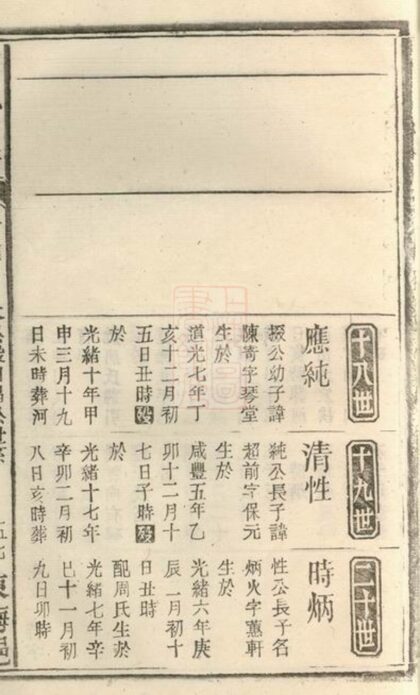 十八世
應純
掇公幼子諱
陳常字琴堂
生於
道光七年丁
亥十二月初
五日丑時歿
於
光緒十年甲
申三月十九
日未時葬河
十九世
清性
純公長子諱
超前字保元
生於
咸豐五年乙
卯十二月十
七日子時歿
於
光緒十七年
辛卯二月初
八日亥時葬
二十世
時炳
性公長子名
炳火字蕙軒
生於
光緒六年庚
辰一月初十
日丑時
配周氏生於
光緒七年辛
巳十一月初
九日卯時